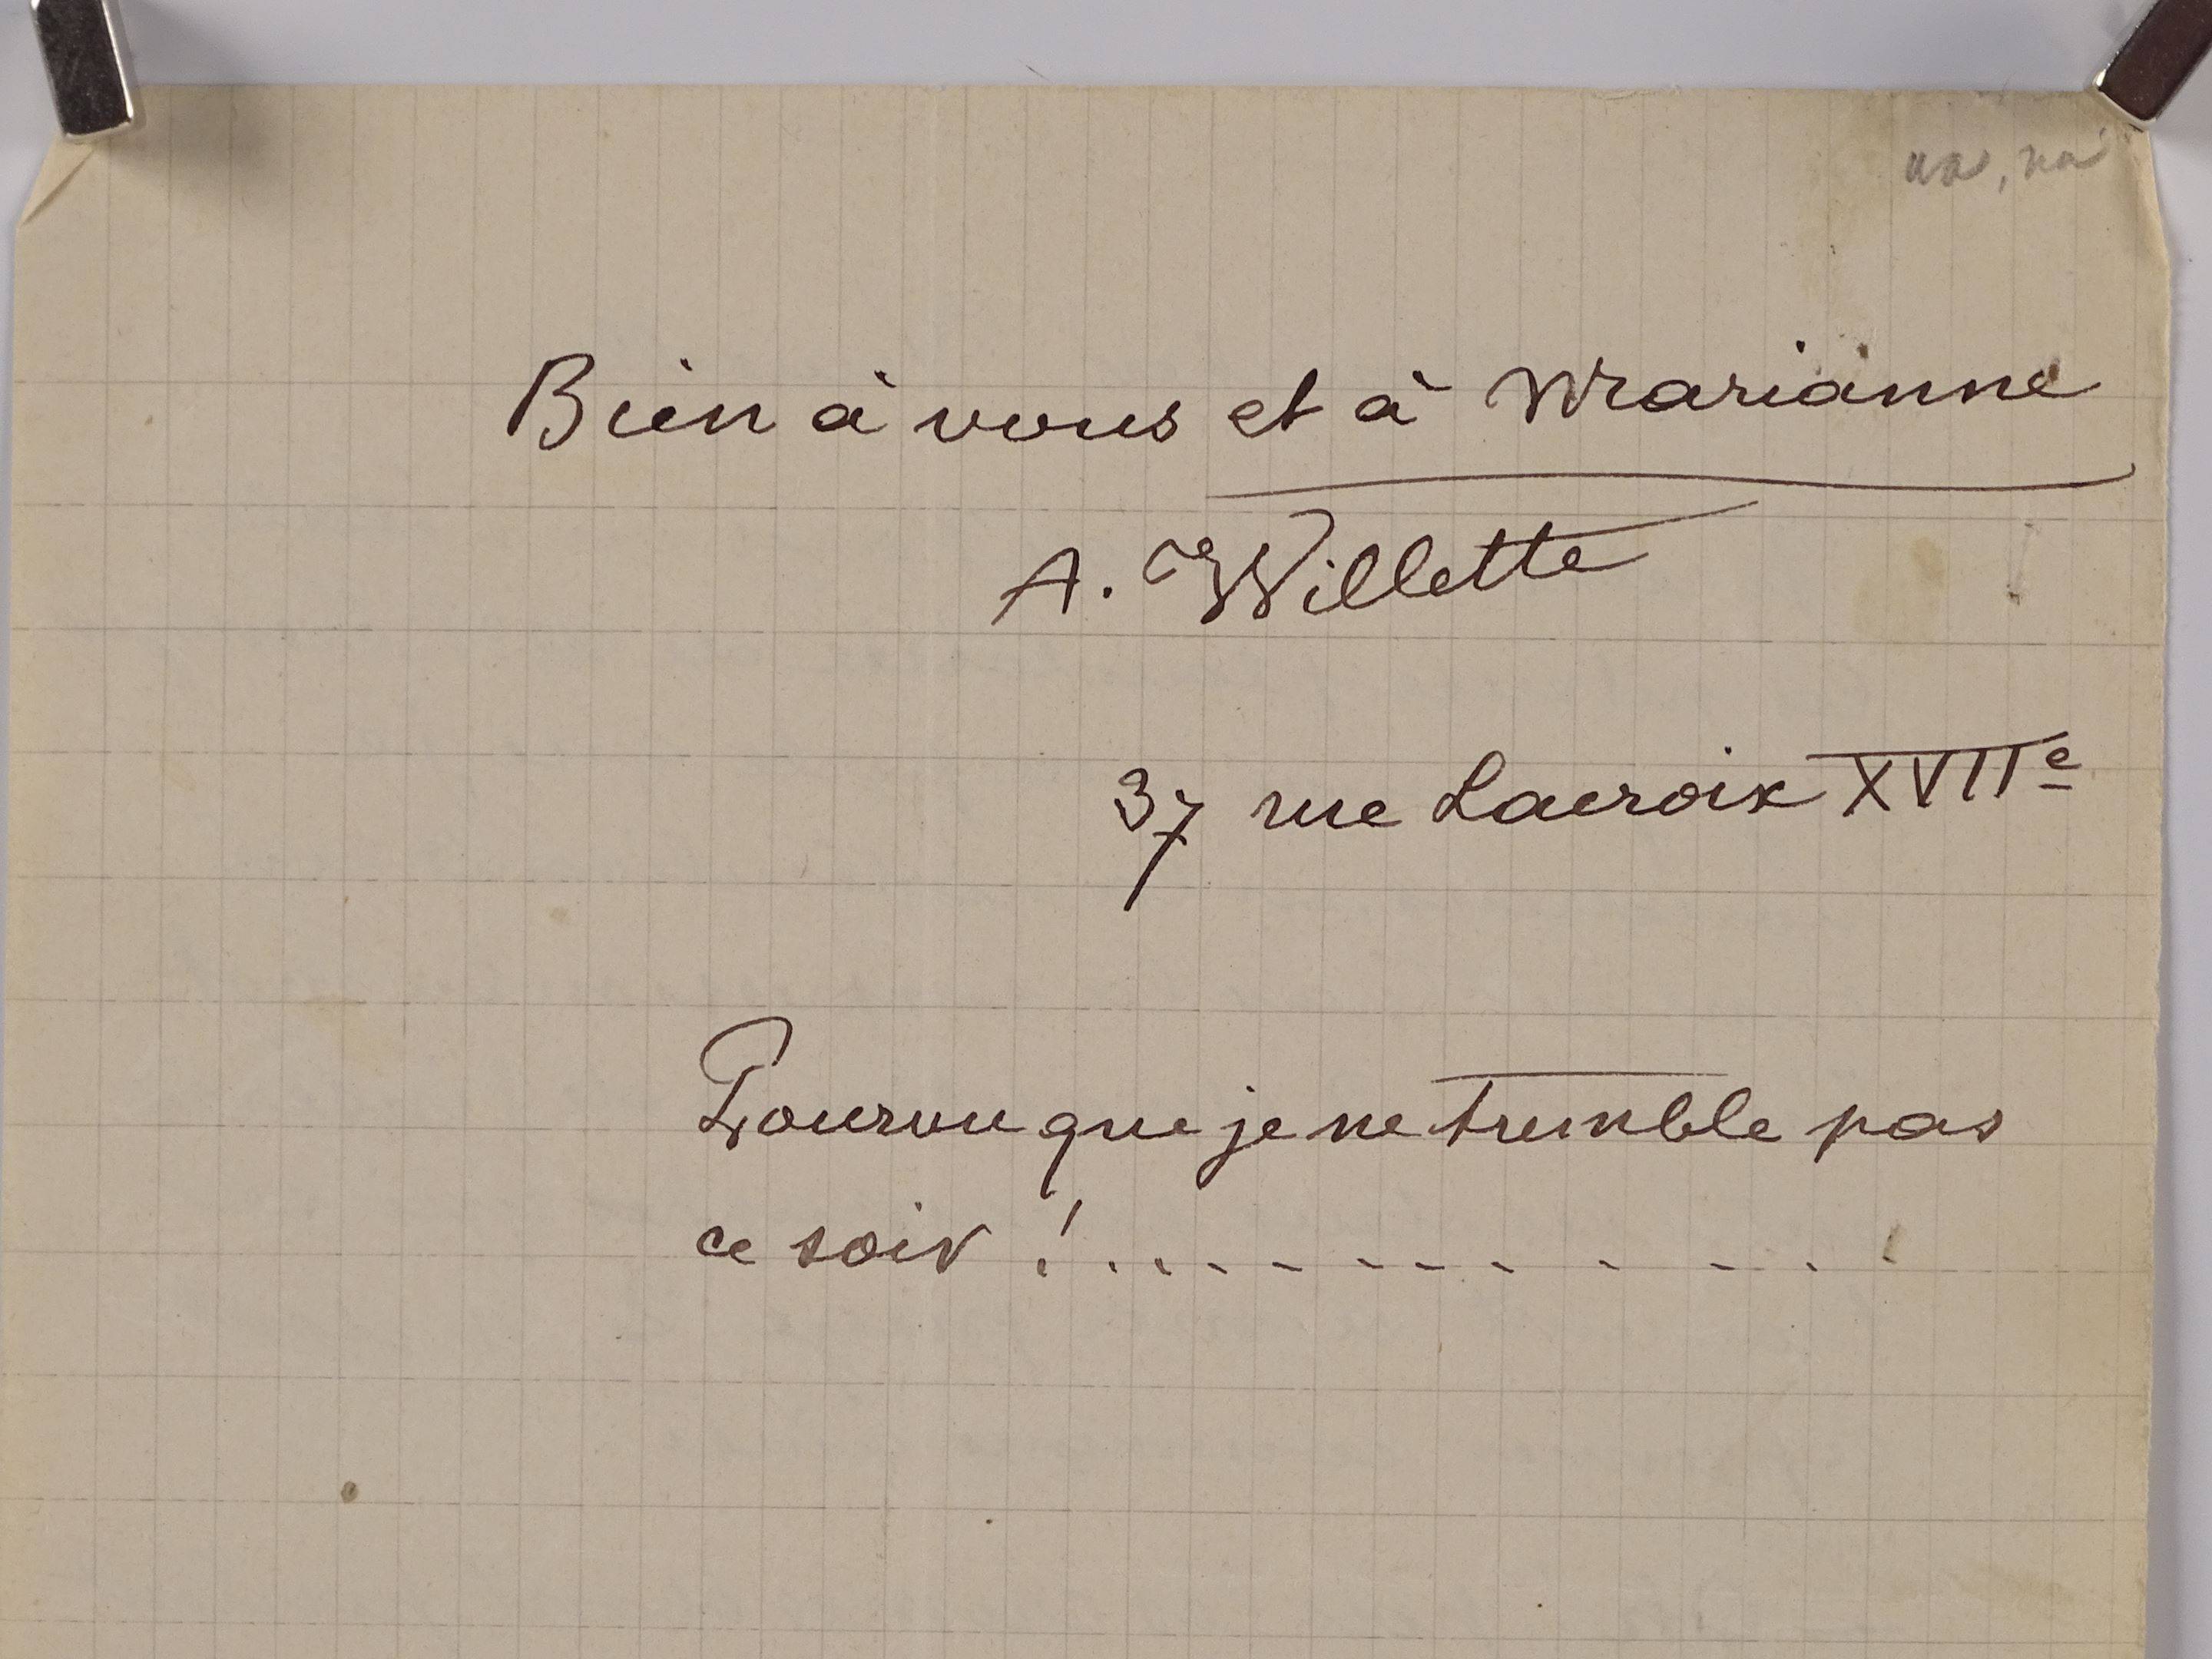 Bien à vous et à Marianne
A. Willette
37 rue Lacroix XVIIe
Pourvu que je ne tremble pas
ce soir !..............